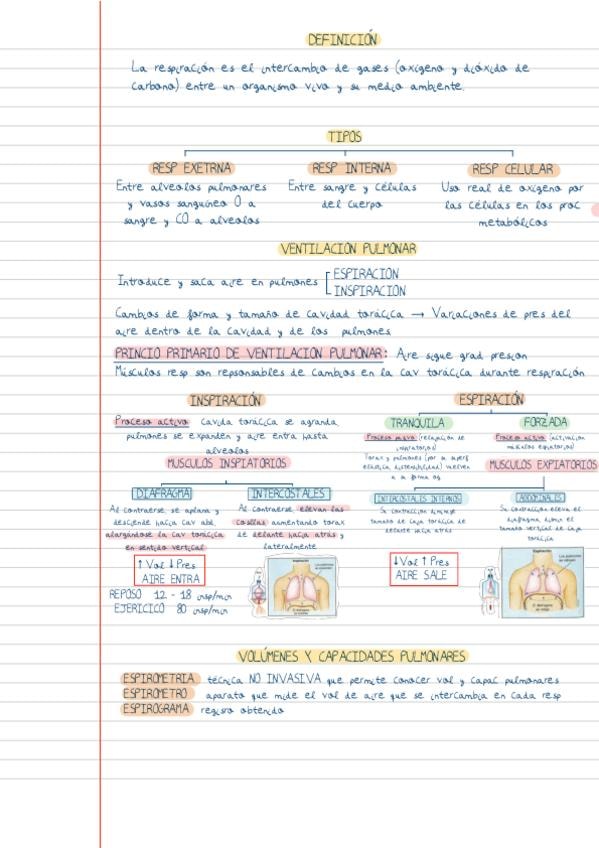 DEFINICIÓN
La respiración es el intercambio de gases (oxígeno y dióxido de
carbono) entre un organismo vivo y su medio ambiente.
TIPOS
RESP EXETRNA
Entre alveolos pulmonares
y vasos sanguíneo O a
sangre y CO a alveolos
RESP INTERNA
Entre sangre y células
del cuerpo
RESP CELULAR
Uso real de oxígeno por
las células en los proc
metabólicos
VENTILACIÓN PULMONAR
Introduce y saca aire en pulmones
ESPIRACIÓN
INSPIRACIÓN
Cambios de forma y tamaño de cavidad torácica → Variaciones de pres del
aire dentro de la cavidad y de los pulmones
PRINCIO PRIMARIO DE VENTILACIÓN PULMONAR: Aire sigue grad presion
Músculos resp son repsonsables de cambios en la cav torácica durante respiración
INSPIRACIÓN
Proceso activo cavida torácica se agranda,
pulmones se expanden y aire entra hasta
alveolos
MUSCULOS INSPIATORIOS
DIAFRAGMA
Al contraerse, se aplana y
desciende hacia cav abd,
alargándose la cav torácica
en sentido vertical
INTERCOSTALES
Al contraerse elevan las
costillas aumentando torax
de delante hacia atrás y
lateralmente
↑ Vol ↓ Pres
AIRE ENTRA
REPOSO 12 - 18 insp/min
EJERICICO 80 insp/min
ESPIRACIÓN
TRANQUILA
Proceso pasivo (relajación de
inspiratorios)
Torax y pulmones (por su
elástica, distensibilidad) vuelven
a su forma og
FORZADA
Proceso activo (activación
músculos espiratorios)
MUSCULOS EXPIATORIOS
INTERCOSTALES INTERNOS
Su contracción disminuye
tamaño de caja torácica de
delante hacia atrás
ABDOMINALES
Su contracción eleva el
diafragma, dismin el
tamaño vertical de caja
torácica
↓ Vol ↑ Pres
AIRE SALE
VOLÚMENES Y CAPACIDADES PULMONARES
ESPIROMETRIA técnica NO INVASIVA que permite conocer vol y capac pulmonares
ESPIROMETRO aparato que mide el vol de aire que se intercambia en cada resp
ESPIROGRAMA registro obtenido